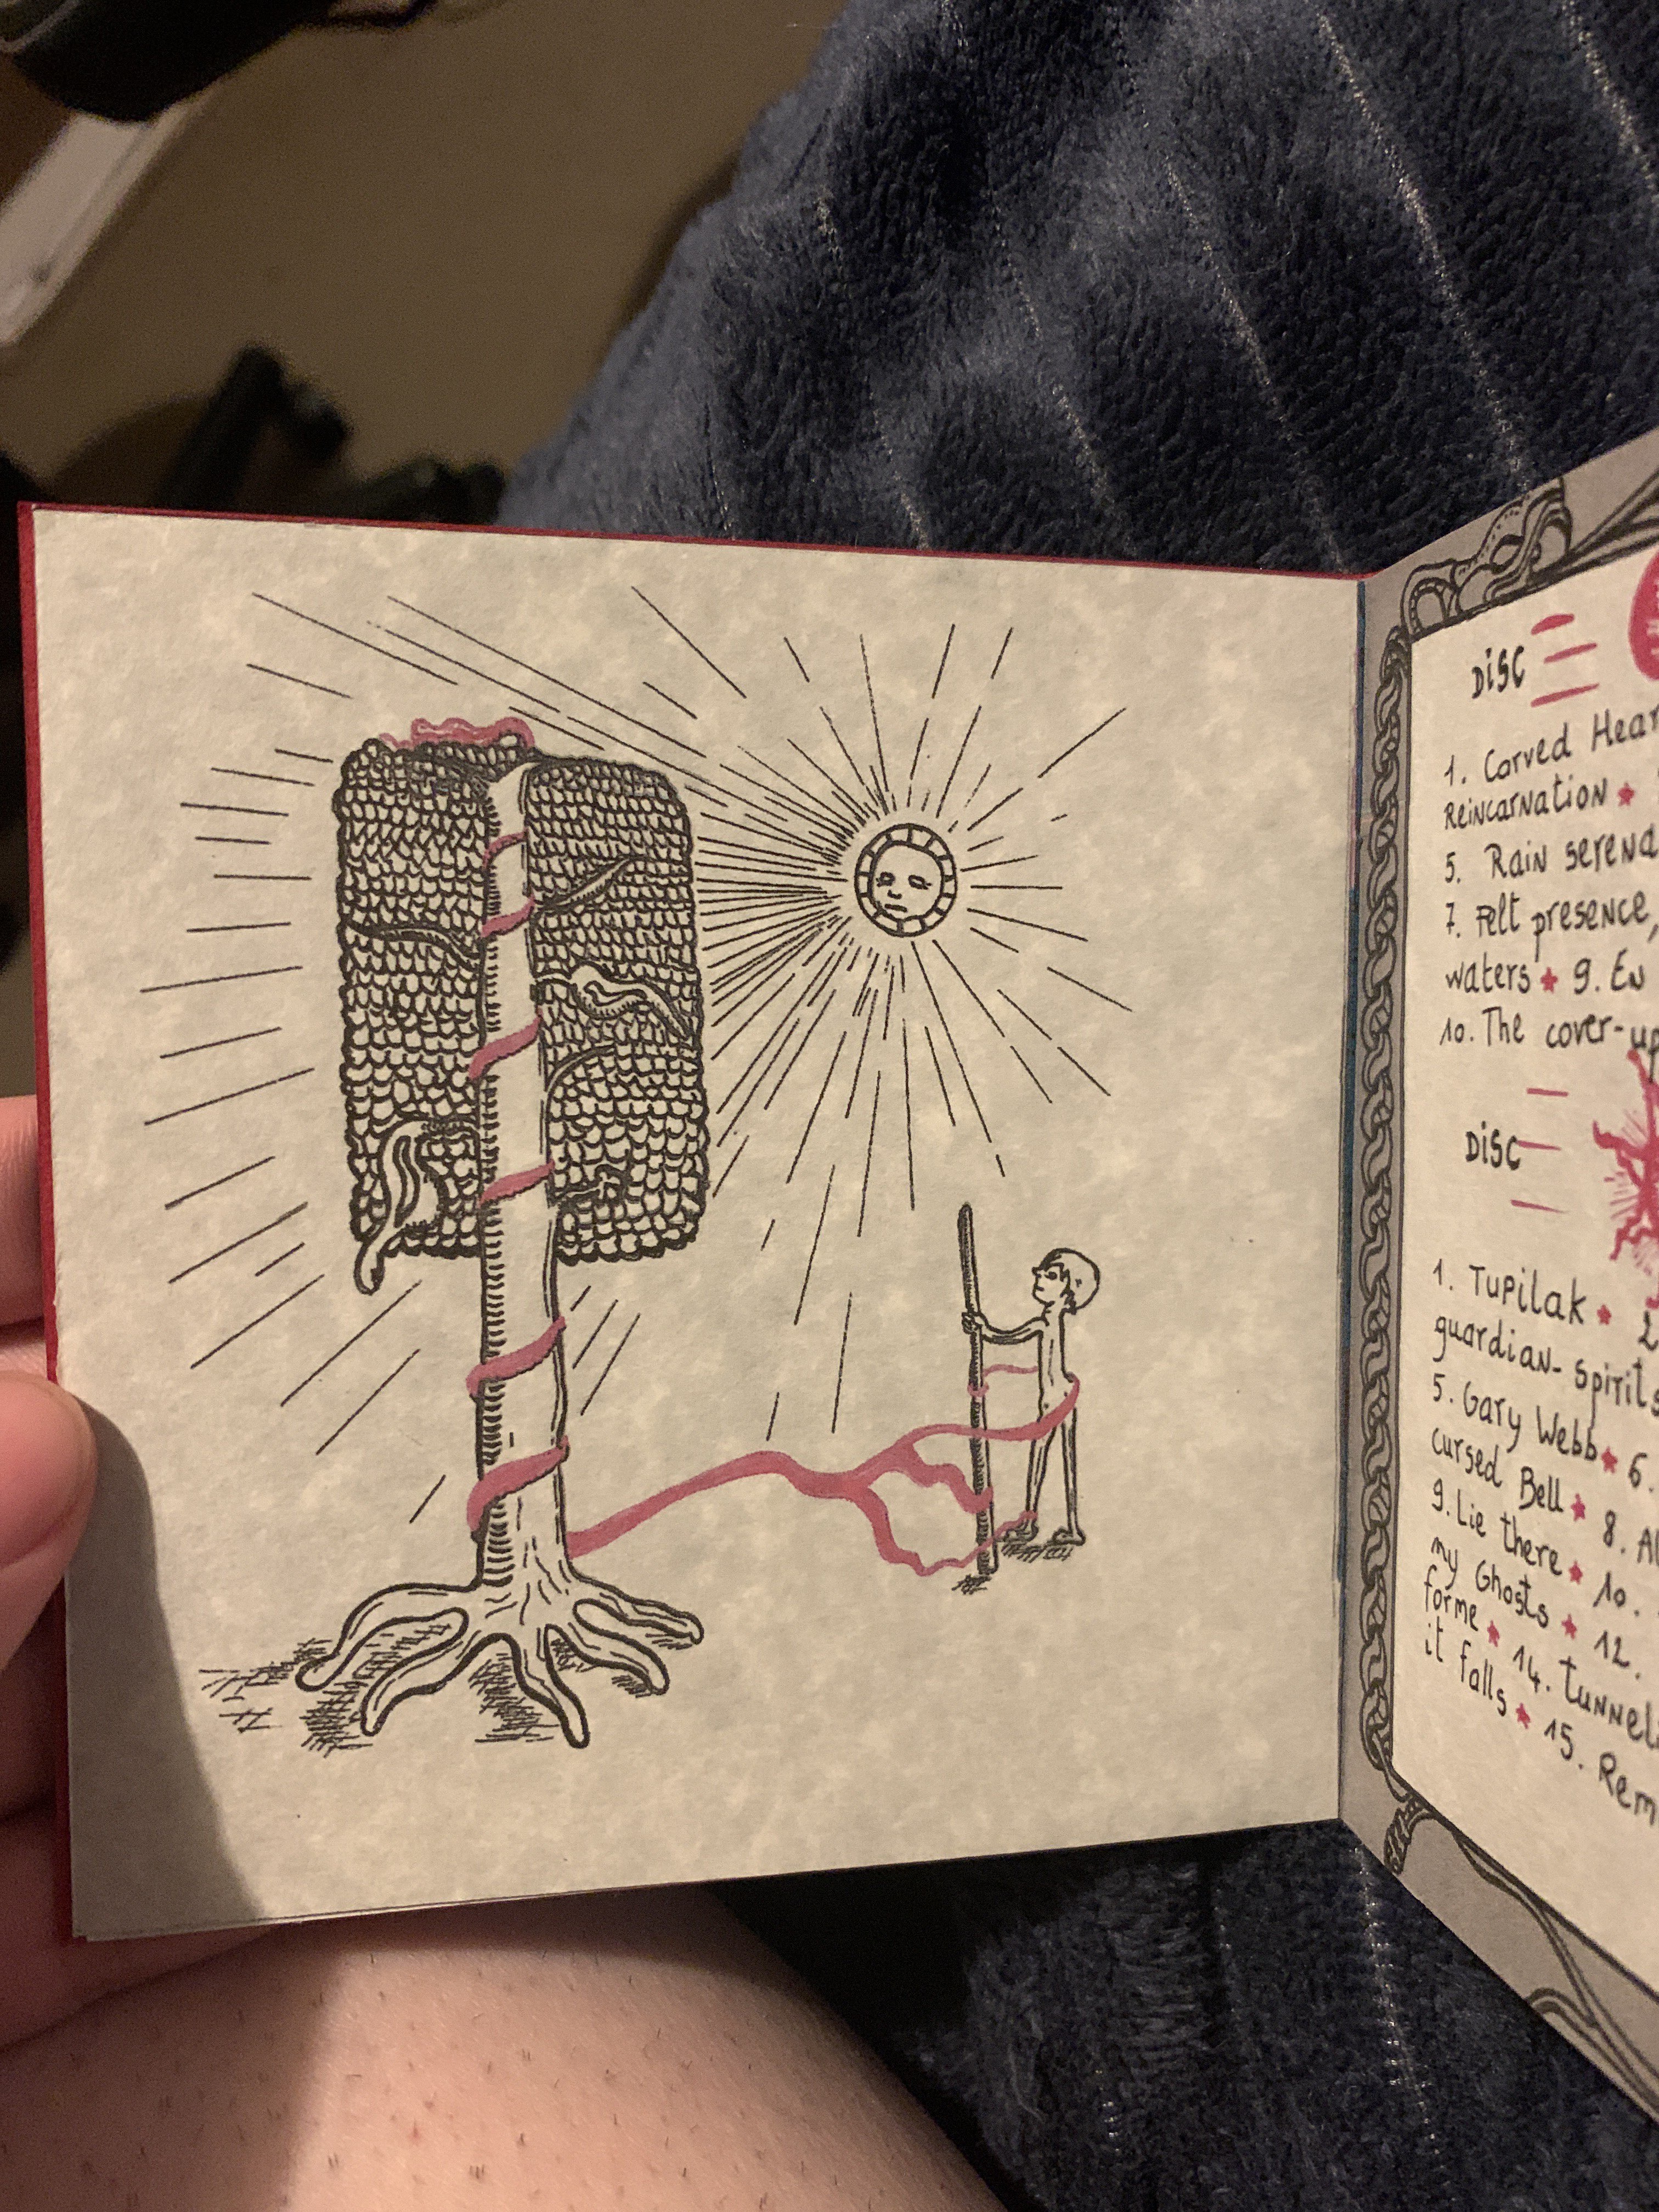 DiSC
1. Carved
Reincarnation ★
5. Rain
7. Felt presence,
waters ★ 9. En
10. The cover-up
DiSC
1. Tupilak ★ 2
guardian-spirits
5. Gary Webb ★ 6.
cursed Bell ★ 8.
9. Lie there ★ 10.
my Ghosts ★ 12.
forme ★ 14.
it falls ★ 15.